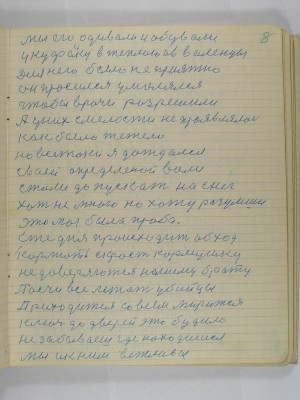 8
мы его одивали и обували
и куфайку в теплыя да в валенцы
Для него было не приятно
он просился умилялся
чтобы врачи разрешили
А у них смелости не проявлялос
как было тежело
но всетоки я дождался
своей определеной воли
стали допускат на снег
хот не много по хожу разгуляюсь
это моя была проба.
Еще дня происходит обход
кормят скрость кормушку
не доверяются нашему брату
Почти все лежат убийцы
Приходится совсем мирится
ключ до дверей это будило
не забываеш где находишся
мы их ним вежливы